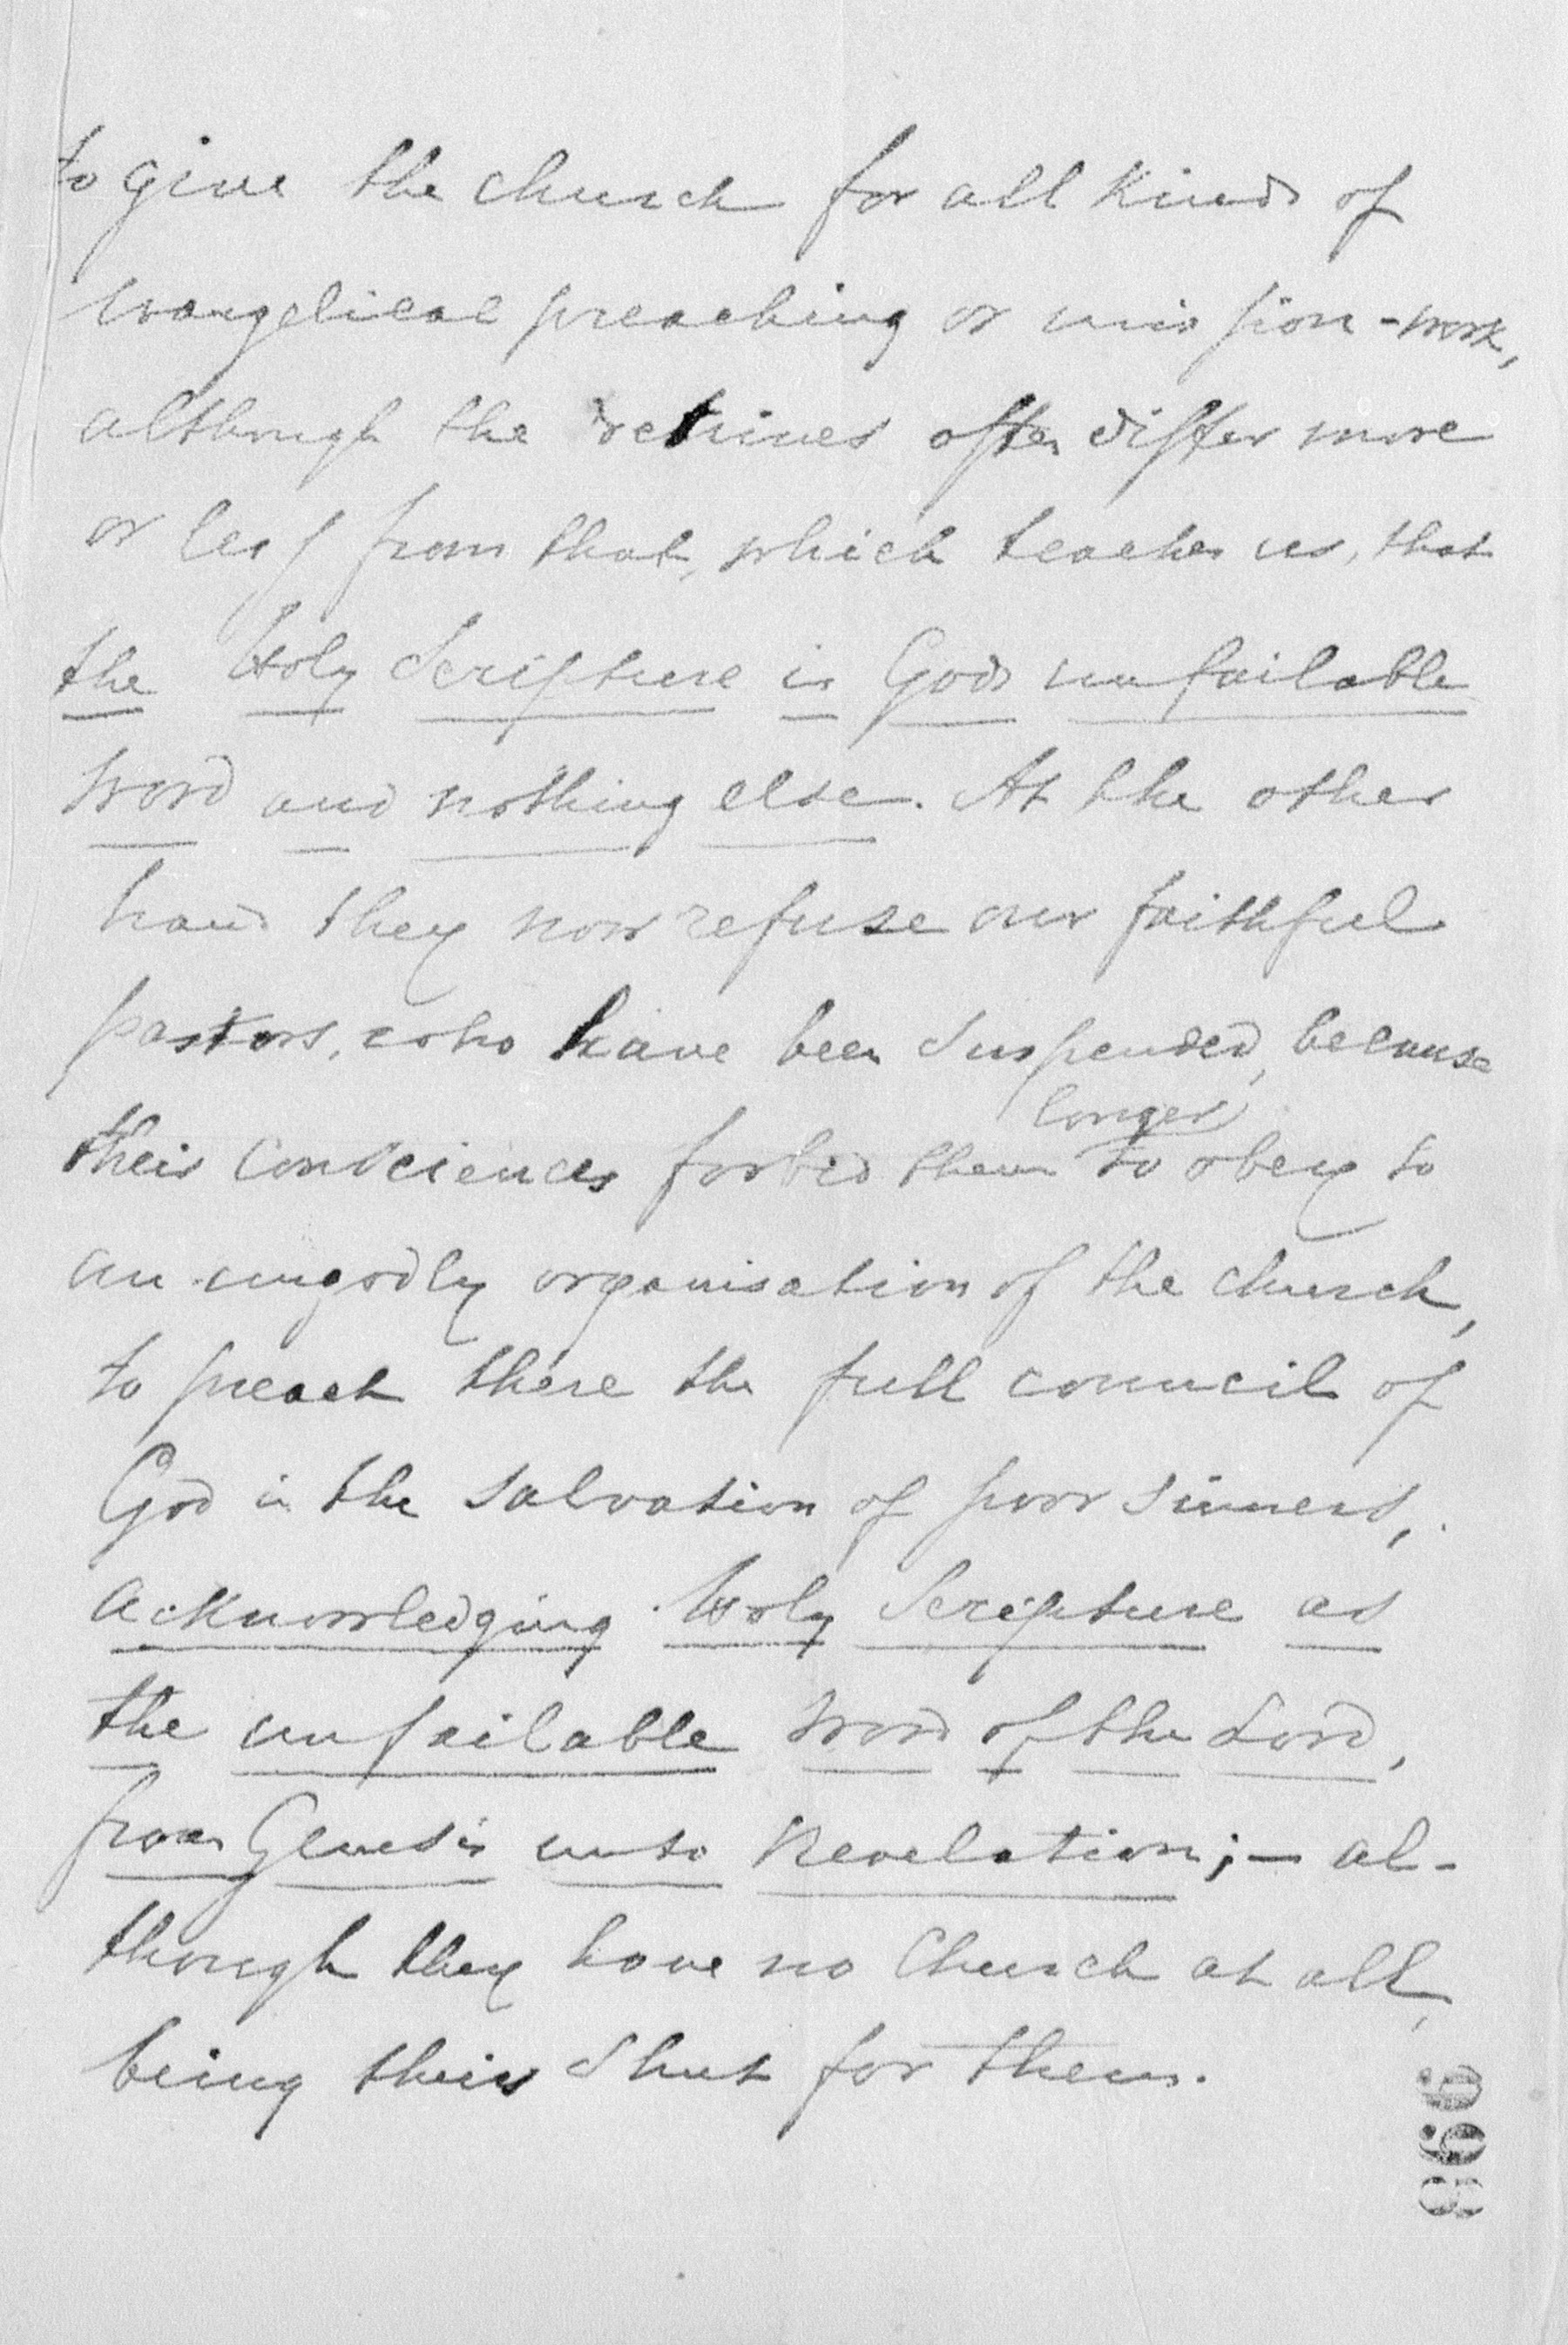 to give the church for all kinds of
evangelical preaching or mission-work,
although the often differ more
or less from that, which teaches us, that
the Holy Scripture is Gods unfailable
word and nothing else. At the other
hand they now refuse our faithful
pastors, who have been suspended, because
longer
their consciences forbed them to obey to
an ungodly organisation of the church,
to preach there the full council of
God in the salvation of poor sinners,
acknowledging Holy Scripture as
the unfailable word of the Lord,
from Genesis unto Revelation; — al-
though they have no Church at all,
being theirs shut for them.
866